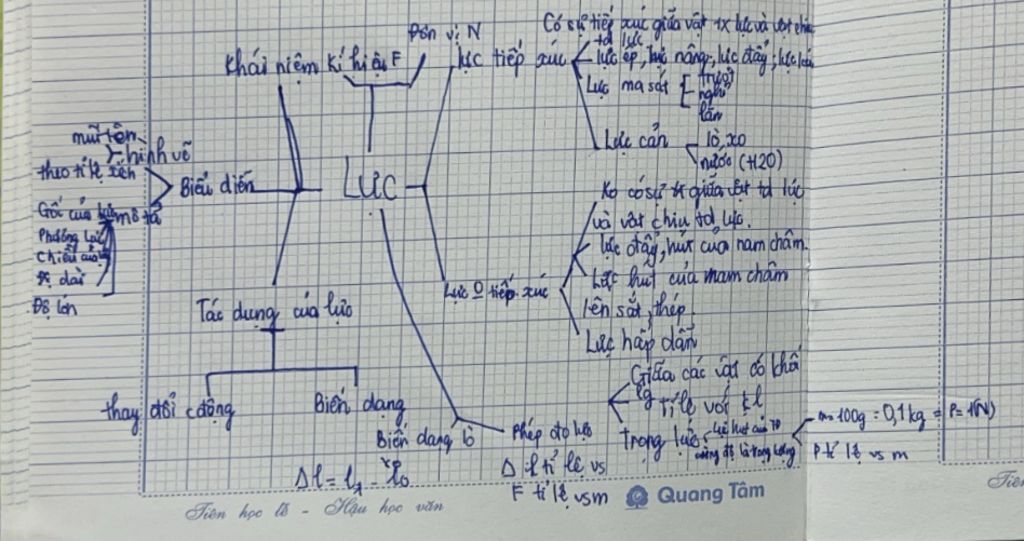 Đơn vị N
Khái niệm kí hiệu F
lực tiếp xúc
Có sự tiếp xúc giữa vật tx lực và vật chịu
td lực
lực ép, lực nâng, lực đẩy, lực kéo
Lực ma sát
trượt
nghỉ
lăn
Lực cản
lò xo
nước (H2O)
mũi tên
hình vẽ
theo tỉ lệ xích
Biểu diễn
LỰC
Gốc của
mô tả
Phương lực
Chiều của
Độ lớn
Ko có sự tx giữa vật td lực
và vật chịu td lực.
lực đẩy, hút của nam châm.
Lực 0 tiếp xúc
Lực hút của nam châm
lên sắt, thép
Lực hấp dẫn
Tác dụng của lực
thay đổi cđộng
Biến dạng
Biến dạng lò
xo
Δl = l₁ - l₀
Phép đo lực
Δl tỉ lệ vs
F tỉ lệ vs m
Giữa các vật có khối
lg
Tỉ lệ với kl
Trọng lực
Lực hút của TĐ
cường độ là trọng lượng
m = 100g = 0,1 kg = P = 1(N)
P tỉ lệ vs m
Tiên học lễ - Hậu học văn
Quang Tâm
Tiên